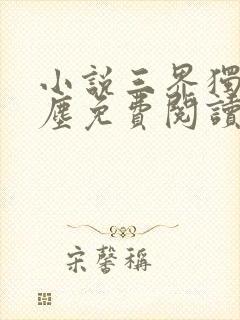 小說三界獨
塵免費閱讀
宋馨稱